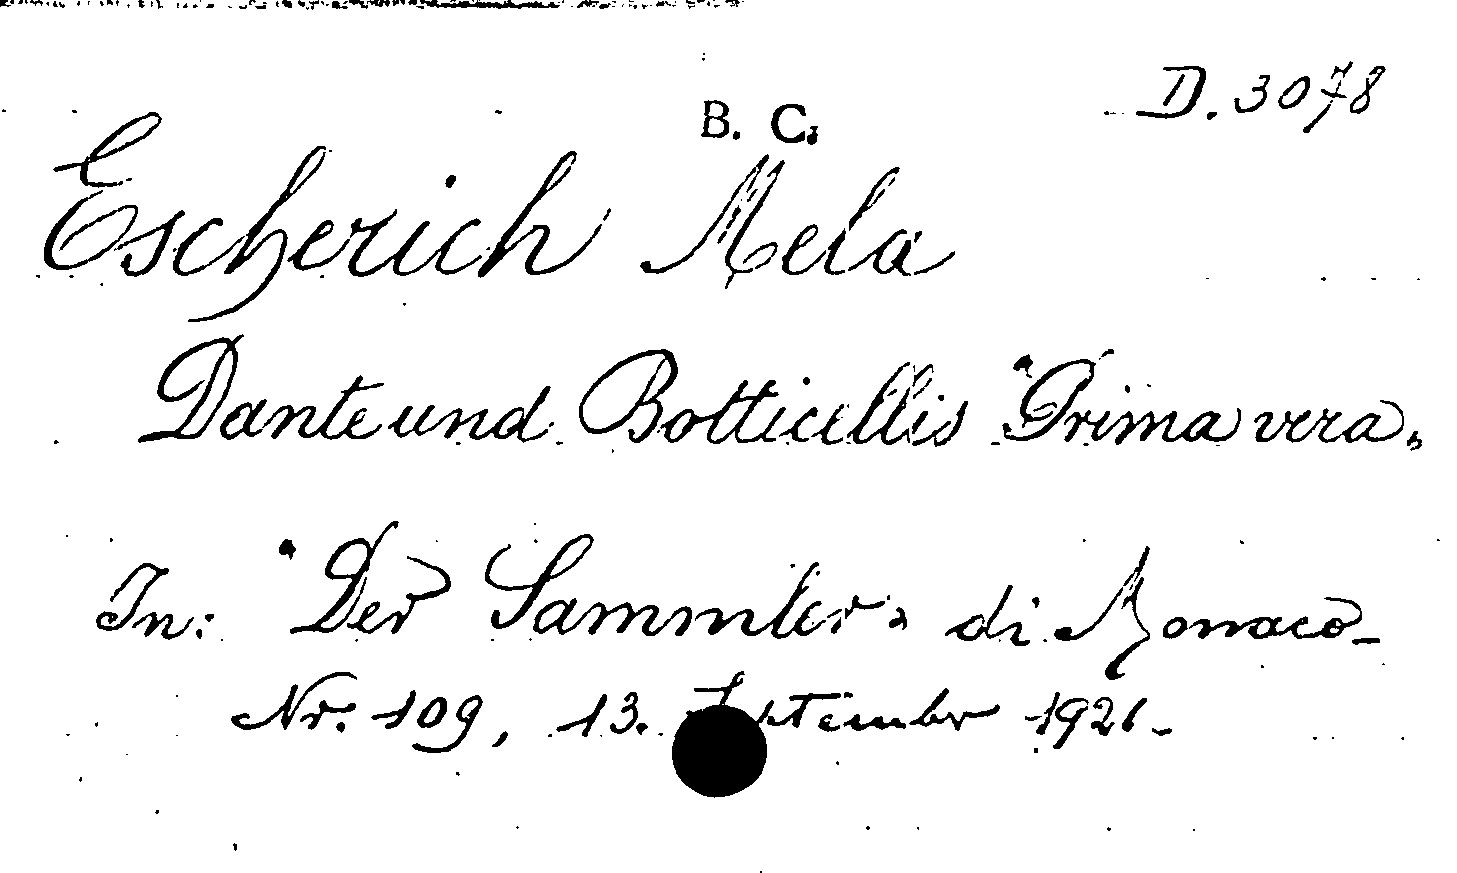 D. 3078
B. C.
Escherich Mela
Dante und Botticellis "Primavera"
In: "Der Sammler" di Monaco-
Nr. 109, 13. September 1921.